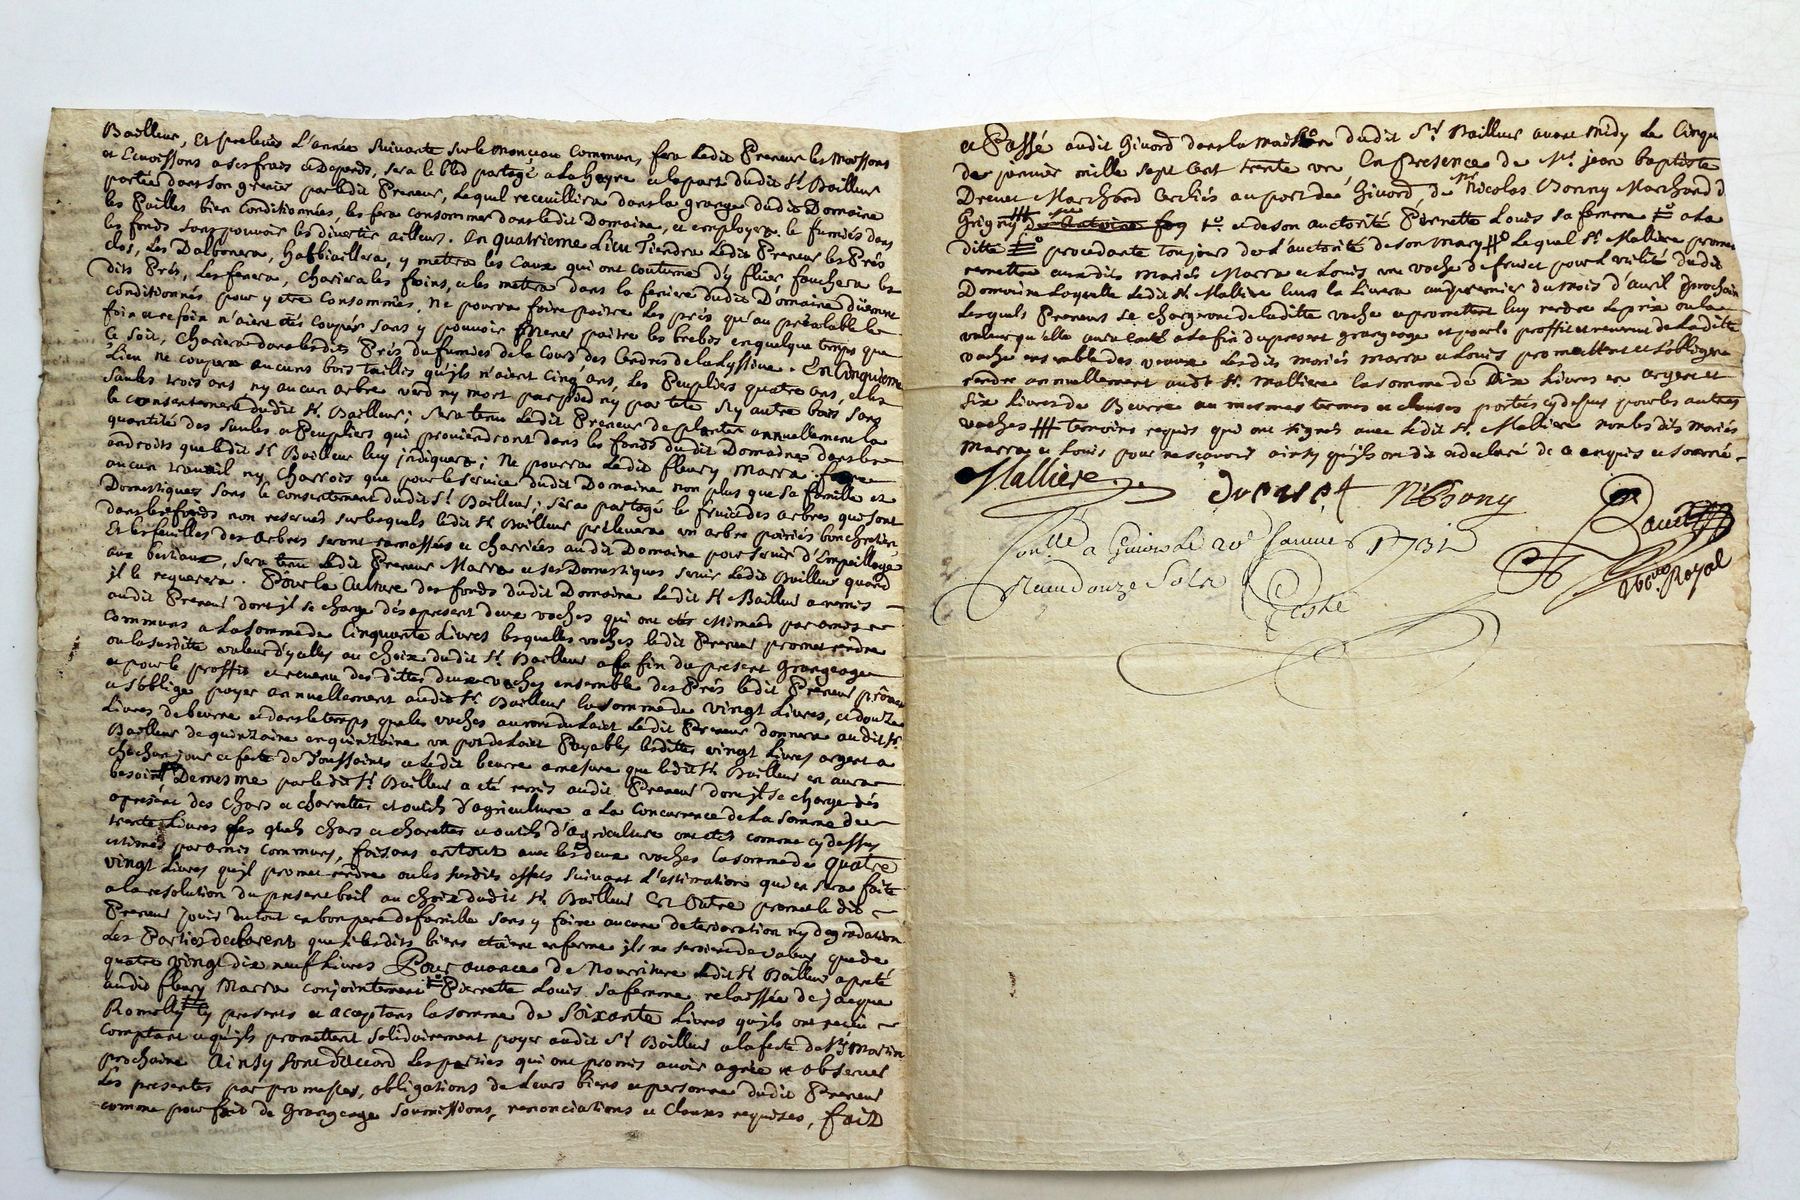 Bailleur, Et prelevée L'année Suivante sur le monceau Commun, fera Ledit Preneur les Moissons
et Emoissons a ses frais et depends, sera le bled partagé a La Gerbe et la part dudit Sr. Bailleur
portée dans son grenier par ledit Preneur, Lequel recueillira dans la grange dudit Domaine
les Pailles bien Conditionnées, les fera consommer dans ledit Domaine, et employera le fumier dans
les fonds sans pouvoir les divertir ailleurs. En quatrieme Lieu Tiendra Ledit Preneur les Prés
clos, Les y mettra les Eaux qui ont coutume d'y fluer, fauchera les
dits Prés, Les fenera, Charriera les foins, et les mettra dans la feniere dudit Domaine düement
conditionnés pour y etre Consommés, Ne pourra faire paitre Les prés qu'au préalable le
foin et refoin n'aient etés coupés sans y pouvoir Mener paitre les brebis en quelque temps que
Ce Soit, Chariera dans lesdits Prés du fumier de la Cour des Cendres de la Lyssive. En Cinquieme
Lieu ne coupera aucuns bois Taillis qu'ils n'aient Cinq ans, Les Peupliers quatre ans, et les
Saules trois ans ny aucun arbre verd ny mort par pied ny par tete ny autre bois sans
le consentement dudit Sr. Bailleur; Sera tenu Ledit Preneur de planter annuellement la
quantité des Saules et Peupliers qui proviendront dans les fonds dudit Domaine dans les
endroits que ledit Sr. Bailleur luy jndiquera; Ne pourra Ledit fleury Marra faire
aucun travail ny Charrois que pour le service dudit Domaine non plus que sa famille et
Domestiques sans le consentement dudit Sr. Bailleur; Sera partagé le fruict des arbres qui sont
dans les fonds non reservés sur lesquels ledit Sr. Bailleur prélevera un arbre poirier bon chretien
Et les feuilles des Arbres seront ramassées et charriées audit Domaine pour servir d'Empaillage
aux bestiaux, sera tenu Ledit Preneur Marra et ses Domestiques servir Ledit Bailleur quand
jl le requerera. Pour la Culture des fonds dudit Domaine Ledit Sr. Bailleur a remis
audit Preneur dont jl se charge dés apresent deux vaches qui ont etés estimées par amis
Communs a La somme de Cinquante Livres lesquelles vaches ledit Preneur promet rendre
ou la susditte valeur d'ycelles au choix dudit Sr. Bailleur a la fin du present Grangeage
et pour le proffit et revenu des dittes deux vaches ensemble des Prés ledit Preneur promet
et s'oblige payer annuellement audit Sr. Bailleur la somme de vingt Livres, et douze
Livres de beurre et dans le temps que les vaches auront du Laict Ledit Preneur donnera audit Sr.
Bailleur de quinzaine en quinzaine un pot de Laict Payables lesdittes vingt Livres argent a
chacun jour et feste de Toussaints et Ledit beurre a mesure que ledit Sr. Bailleur en aura
besoin Demesme par ledit Sr. Bailleur a eté remis audit Preneur dont jl se charge dés
apresent des Chars et charrettes et outils d'agriculture a La Concurrence de La Somme de
trente Livres Les quels chars et charettes et outils d'agriculture ont etés comme cy dessus
estimés par amis communs, faisant en tout avec les deux vaches la somme de quatre
vingt Livres qu'jl promet rendre ou les susdits effets suivant l'estimation qui en sera faite
a la resolution du present bail au choix dudit Sr. Bailleur En Outre promet le dit
Preneur jouir du tout en bon pere de famille sans y faire aucune deterioration ny degradation
Les Parties declarent que si lesdits biens etoient en ferme jls ne seroient de valeur que de
quatre vingt dix neuf Livres Pour avance de Nourriture Ledit Sr. Bailleur a preté
audit fleury Marra conjointement Pierrette Louis sa femme relaissée de Jacque
Romolly cy presents et aceptans la somme de Soixante Livres qu'jls ont receu
comptant et qu'jls promettent solidairement payer audit Sr. Bailleur a la feste de St. Martin
prochaine Ainsy sont d'accord Les parties qui ont promis avoir agrée et observer
Les presentes par promesses, obligations de leurs biens et personne dudit Preneur
comme pour fait de Grangeage Soumissions, renonciations et Clauses requises, fait
et Passé audit Givord dans la maison dudit Sr. Bailleur avant Midy Le Cinqu
de janvier mille Sept Cent trente un, En Presence de Mr. jean baptiste
Drevet Marchand au port de Givord, de Mr. Nicolas Bonny Marchand d
Grigny et de son auctorité Pierrette Louis sa femme a La
ditte procedante toujours de L'auctorité de son mary Lequel Sr. Mallière promet
remettre auxdits mariés Marra et Louis une vache de fruict pour L'utilité dudit
Domaine Laquelle Ledit Sr. Mallière leur La Livrera au premier du mois d'avril prochain
Lesquels Preneurs se chargeront de laditte vache et promettent luy rendre le prix ou la
valeur qu'elle aura couté a la fin du present grangeage et pour le proffit et revenu de Laditte
vache ensemble des veaux Lesdits mariés Marra et Louis promettent et s'obligent
rendre annuellement audit Sr. Mallière la somme de Dix Livres en argent et
Six Livres de Beurre au mesmes termes et clauses portées cy dessus pour les autres
vaches temoins requis qui ont signés avec Ledit Sr. Mallière non les dits mariés
Marra et Louis pour ne sçavoir ainsy qu'jls ont dit et declaré de ce enquis et sommé
Mallière
Drevet
N Bony
Conllé a Givors Le 20e Janvier 1731
Receu douze Sols
Nore. Royal